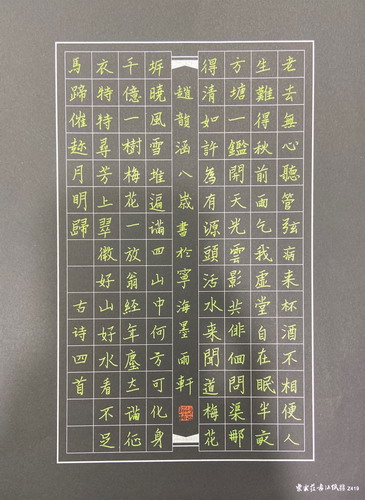 老去無心聽管弦病来杯酒不相便人
生難得秋前雨乞我虛堂自在眠半畝
方塘一鑑開天光雲影共徘徊問渠那
得清如許為有源頭活水来聞道梅花
趙韻涵八歲書於寧海墨雨軒
坼曉風雪堆遍滿四山中何方可化身
千億一樹梅花一放翁經年塵土滿征
衣特特尋芳上翠微好山好水看不足
馬蹄催趁月明歸
古诗四首
2419